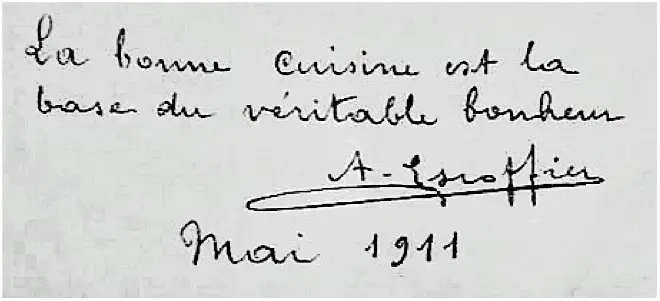 La bonne cuisine est la
base du véritable bonheur
A. Escoffier
Mai 1911